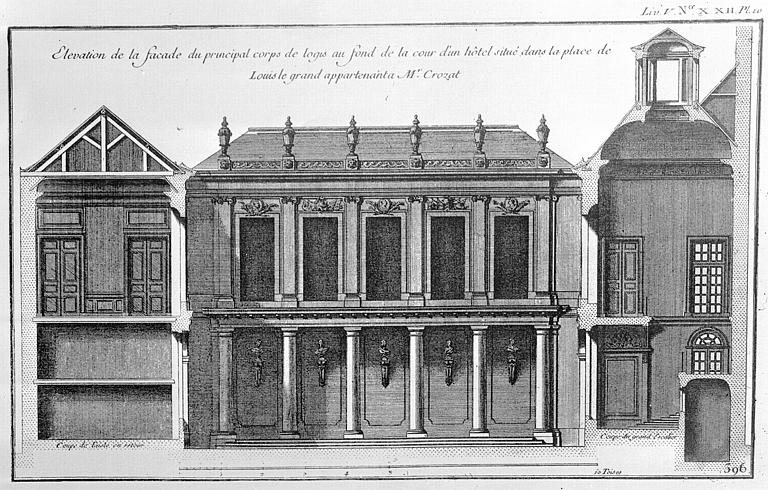 Liv. V. N.º XXII. Pl. 10
Elevation de la facade du principal corps de logis au fond de la cour d'un hôtel situé dans la place de
Louis le grand appartenant a M.r Crozat
Coupe de l'aisle en retour
Coupe du grand Escalier
1 2 3 4 5
10 Toises
396